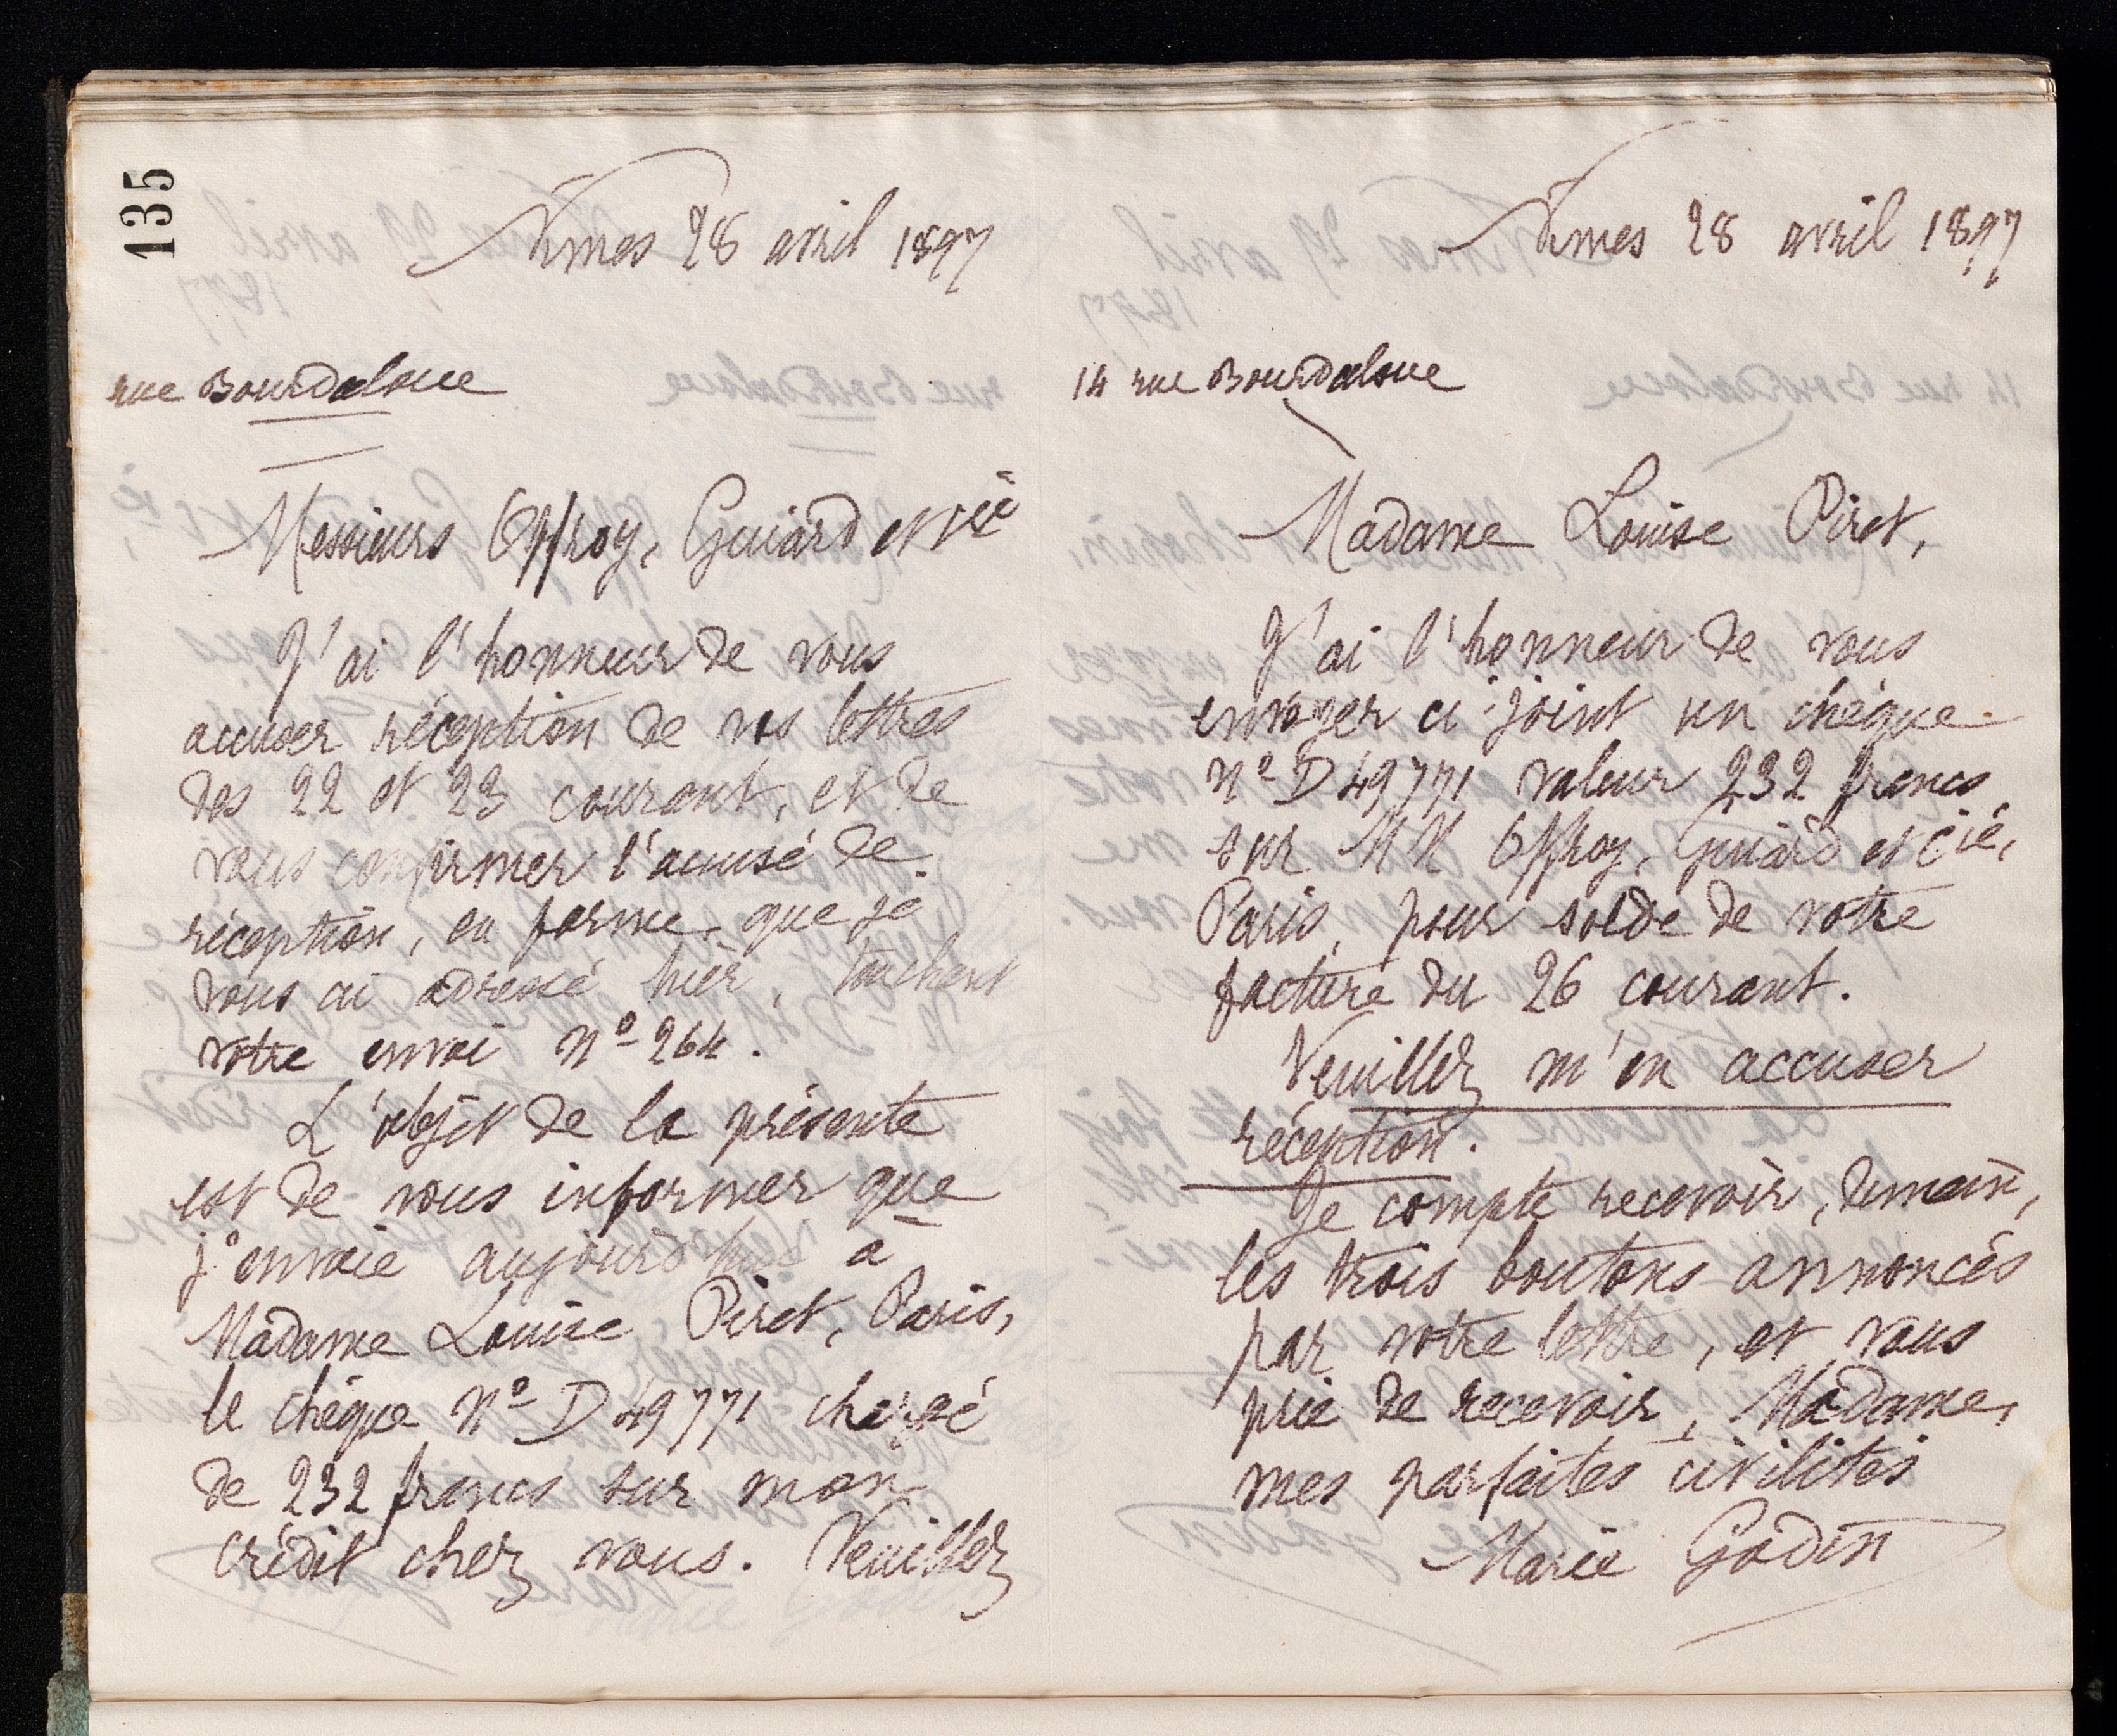 135
Nîmes 28 avril 1897
rue Bourdaloue
Messieurs Offroy, Guiard et Cie
J'ai l'honneur de vous
accuser réception de vos lettres
des 22 et 23 courant, et de
vous confirmer l'accusé de
réception, en forme, que je
vous ai adressé hier, touchant
votre envoi No 264.
L'objet de la présente
est de vous informer que
j'envoie aujourd'hui à
Madame Louise Piret, Paris,
le chèque No D 49771 chargé
de 232 francs sur mon
crédit chez vous. Veuillez
Nîmes 28 avril 1897
14 rue Bourdaloue
Madame Louise Piret,
J'ai l'honneur de vous
envoyer ci-joint un chèque
No D 49771 valeur 232 francs
sur MM Offroy, Guiard et Cie,
Paris, pour solde de votre
facture du 26 courant.
Veuillez m'en accuser
réception.
Je compte recevoir, demain,
les trois boutons annoncés
par votre lettre, et vous
prie de recevoir, Madame,
mes parfaites civilités
Marie Godin